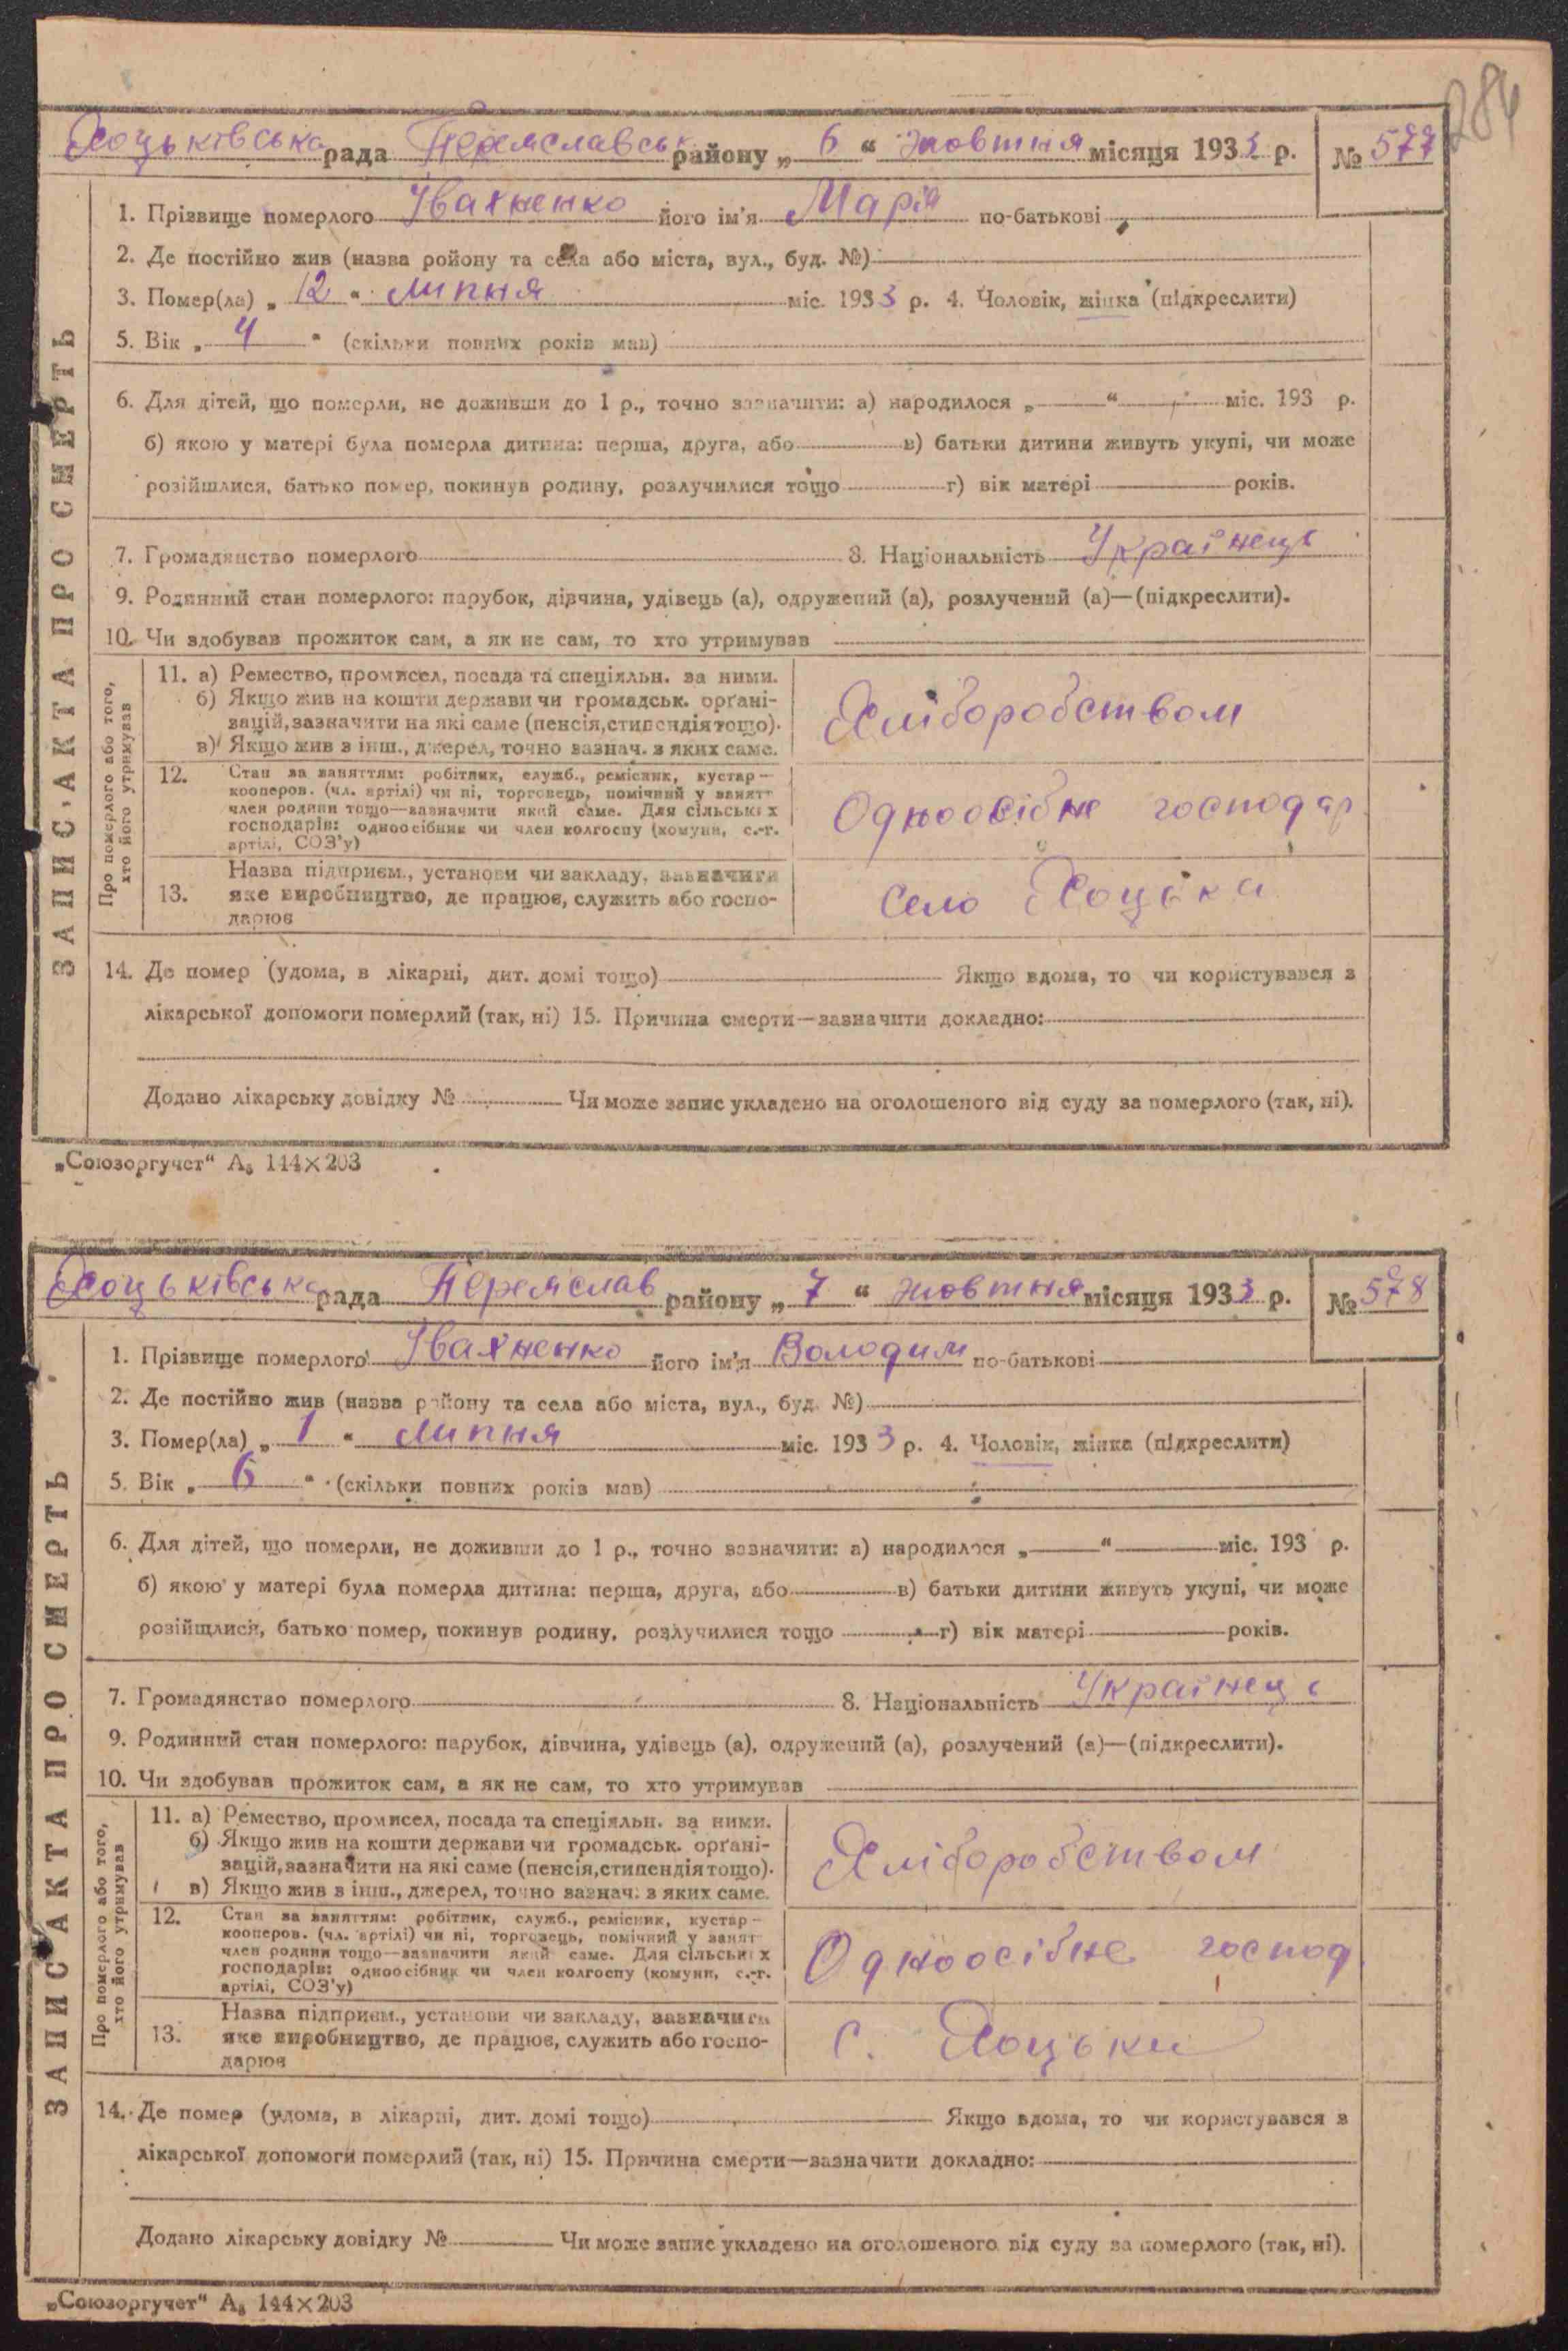 284
Хоцьківська рада Переяславськ району „ 6 “ жовтня місяця 1933 р. № 577
1. Прізвище померлого Івахненко його ім'я Марія по-батькові
2. Де постійно жив (назва ройону та села або міста, вул., буд. №)
3. Помер(ла) „ 12 “ липня міс. 1933 р. 4. Чоловік, жінка (підкреслити)
5. Вік „ 4 “ (скільки повних років мав)
6. Для дітей, що померли, не доживши до 1 р., точно зазначити: а) народилося „ “ міс. 193 р.
б) якою у матері була померла дитина: перша, друга, або в) батьки дитини живуть укупі, чи може
розійшлися, батько помер, покинув родину, розлучилися тощо г) вік матері років.
7. Громадянство померлого 8. Національність Українець
9. Родинний стан померлого: парубок, дівчина, удівець (а), одружений (а), розлучений (а)—(підкреслити).
10. Чи здобував прожиток сам, а як не сам, то хто утримував
ЗАПИС АКТА ПРО СМЕРТЬ
Про померлого або того, хто його утримував
11. а) Ремество, промисел, посада та спеціяльн. за ними.
б) Якщо жив на кошти держави чи громадськ. орґані-
зацій, зазначити на які саме (пенсія, стипендія тощо).
в) Якщо жив з інш., джерел, точно зазнач. з яких саме.
Хліборобством
12. Стан за заняттям: робітник, служб., ремісник, кустар—
кооперов. (чл. артілі) чи ні, торговець, помічний у занятт
член родини тощо—зазначити який саме. Для сільських
господарів: одноосібник чи член колгоспу (комуни, с.-г.
артілі, СОЗ'у)
Одноосібне господар
13. Назва підприєм., установи чи закладу, зазначити
яке виробництво, де працює, служить або госпо-
дарює
Село Хоцьки
14. Де помер (удома, в лікарні, дит. домі тощо) Якщо вдома, то чи користувався з
лікарської допомоги померлий (так, ні) 15. Причина смерти—зазначити докладно:
Додано лікарську довідку № Чи може запис укладено на оголошеного від суду за померлого (так, ні).
„Союзоргучет“ А₅ 144×203
Хоцьківська рада Переяслав району „ 7 “ жовтня місяця 1933 р. № 578
1. Прізвище померлого Івахненко його ім'я Володим по-батькові
2. Де постійно жив (назва району та села або міста, вул., буд. №)
3. Помер(ла) „ 1 “ липня міс. 1933 р. 4. Чоловік, жінка (підкреслити)
5. Вік „ 6 “ (скільки повних років мав)
6. Для дітей, що померли, не доживши до 1 р., точно зазначити: а) народилося „ “ міс. 193 р.
б) якою у матері була померла дитина: перша, друга, або в) батьки дитини живуть укупі, чи може
розійшлися, батько помер, покинув родину, розлучилися тощо г) вік матері років.
7. Громадянство померлого 8. Національність Українець
9. Родинний стан померлого: парубок, дівчина, удівець (а), одружений (а), розлучений (а)—(підкреслити).
10. Чи здобував прожиток сам, а як не сам, то хто утримував
ЗАПИС АКТА ПРО СМЕРТЬ
Про померлого або того, хто його утримував
11. а) Ремество, промисел, посада та спеціяльн. за ними.
б) Якщо жив на кошти держави чи громадськ. орґані-
зацій, зазначити на які саме (пенсія, стипендія тощо).
в) Якщо жив з інш., джерел, точно зазнач. з яких саме.
Хліборобством
12. Стан за заняттям: робітник, служб., ремісник, кустар—
кооперов. (чл. артілі) чи ні, торговець, помічний у занят
член родини тощо—зазначити який саме. Для сільських
господарів: одноосібник чи член колгоспу (комуни, с.-г.
артілі, СОЗ'у)
Одноосібне господ
13. Назва підприєм., установи чи закладу, зазначити
яке виробництво, де працює, служить або госпо-
дарює
С. Хоцьки
14. Де помер (удома, в лікарні, дит. домі тощо) Якщо вдома, то чи користувався з
лікарської допомоги померлий (так, ні) 15. Причина смерти—зазначити докладно:
Додано лікарську довідку № Чи може запис укладено на оголошеного від суду за померлого (так, ні).
„Союзоргучет“ А₅ 144×203